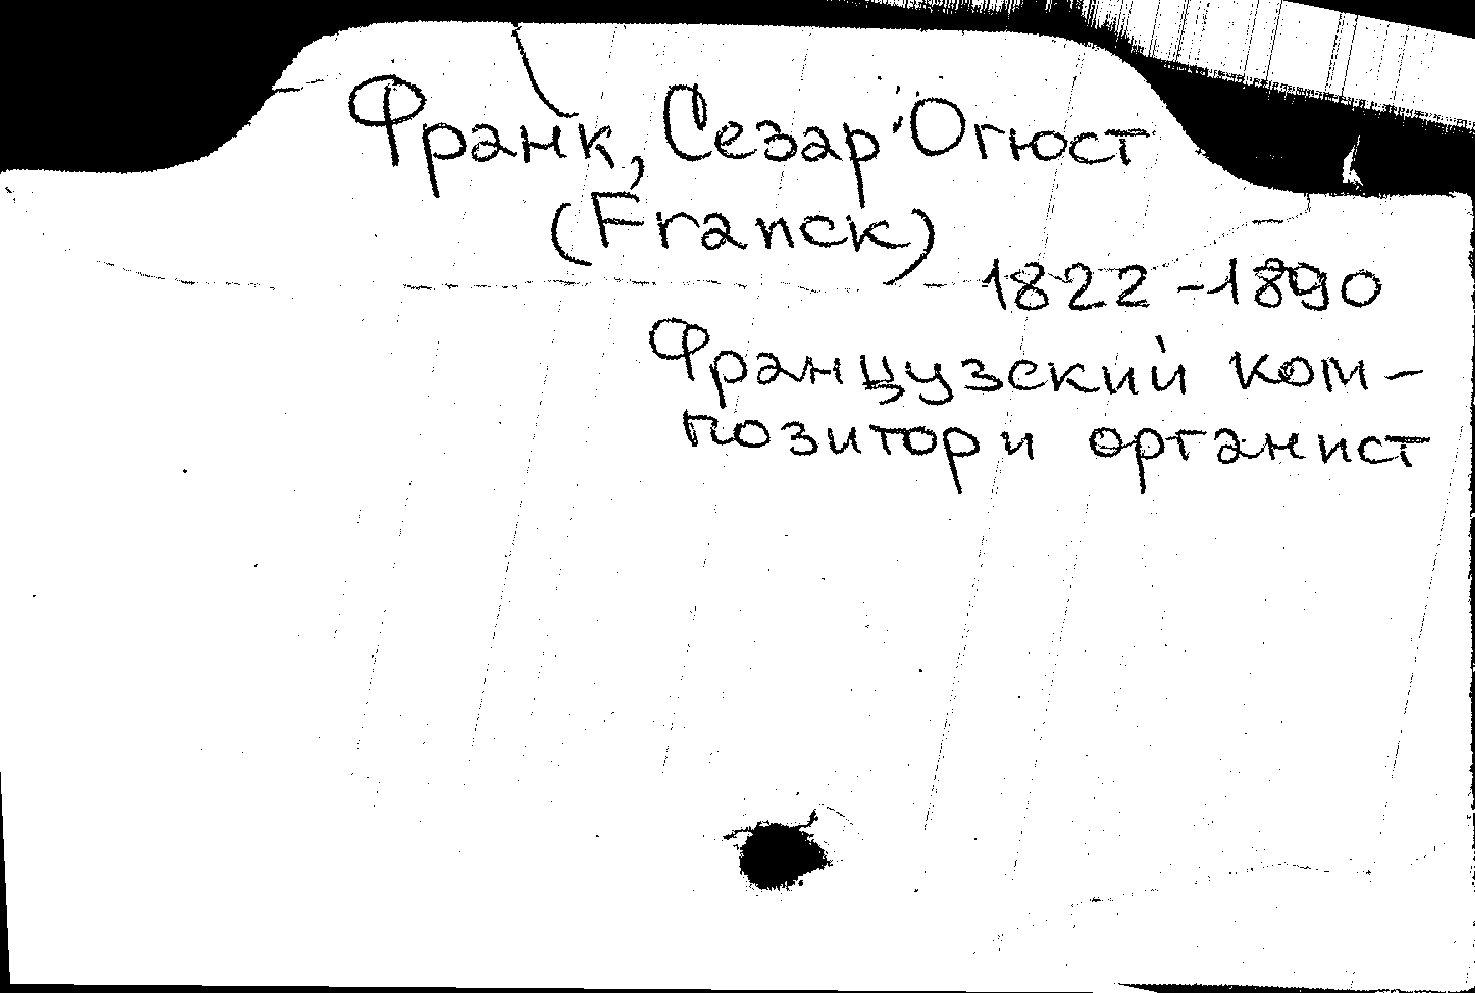 Франк, Сезар Огюст
(Franck)
1822-1890
Французский ком-
позитор и органист